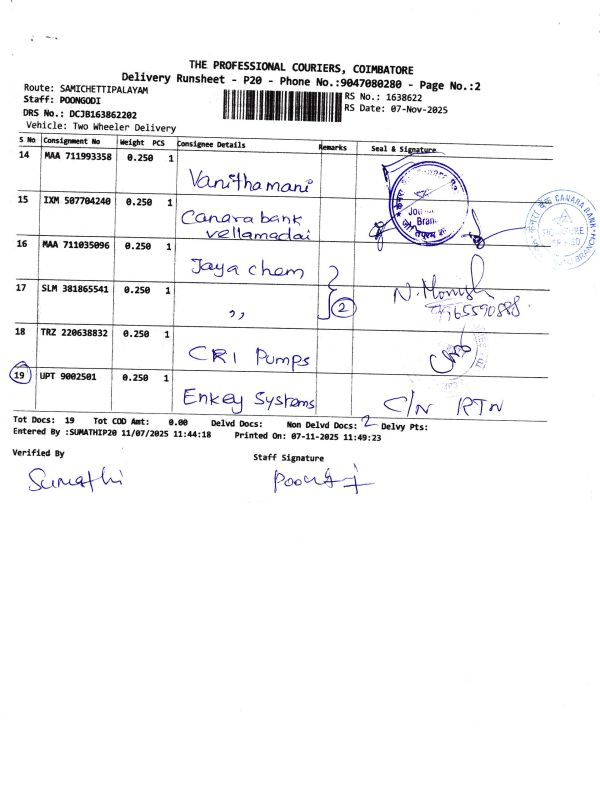 THE PROFESSIONAL COURIERS, COIMBATORE
Delivery Runsheet - P20 - Phone No.:9047080280 - Page No.:2
Route: SAMICHETTIPALAYAM
Staff: POONGODI
RS No.: 1638622
DRS No.: DCJB163862202
RS Date: 07-Nov-2025
Vehicle: Two Wheeler Delivery
S No Consignment No Weight PCS Consignee Details Remarks Seal & Signature
14 MAA 711993358 0.250 1 Vanithamani
15 IXM 507704240 0.250 1 Canara bank
vellamadai
CANARA BANK
BRANCH
16 MAA 711035096 0.250 1 Jaya chem
17 SLM 381865541 0.250 1 ,, 2
18 TRZ 220638832 0.250 1 CRI Pumps
19 UPT 9002501 0.250 1 Enkey Systems C/N RTN
Tot Docs: 19 Tot COD Amt: 0.00 Delvd Docs: Non Delvd Docs: 2 Delvy Pts:
Entered By :SUMATHIP20 11/07/2025 11:44:18 Printed On: 07-11-2025 11:49:23
Verified By
Staff Signature
Sumathi